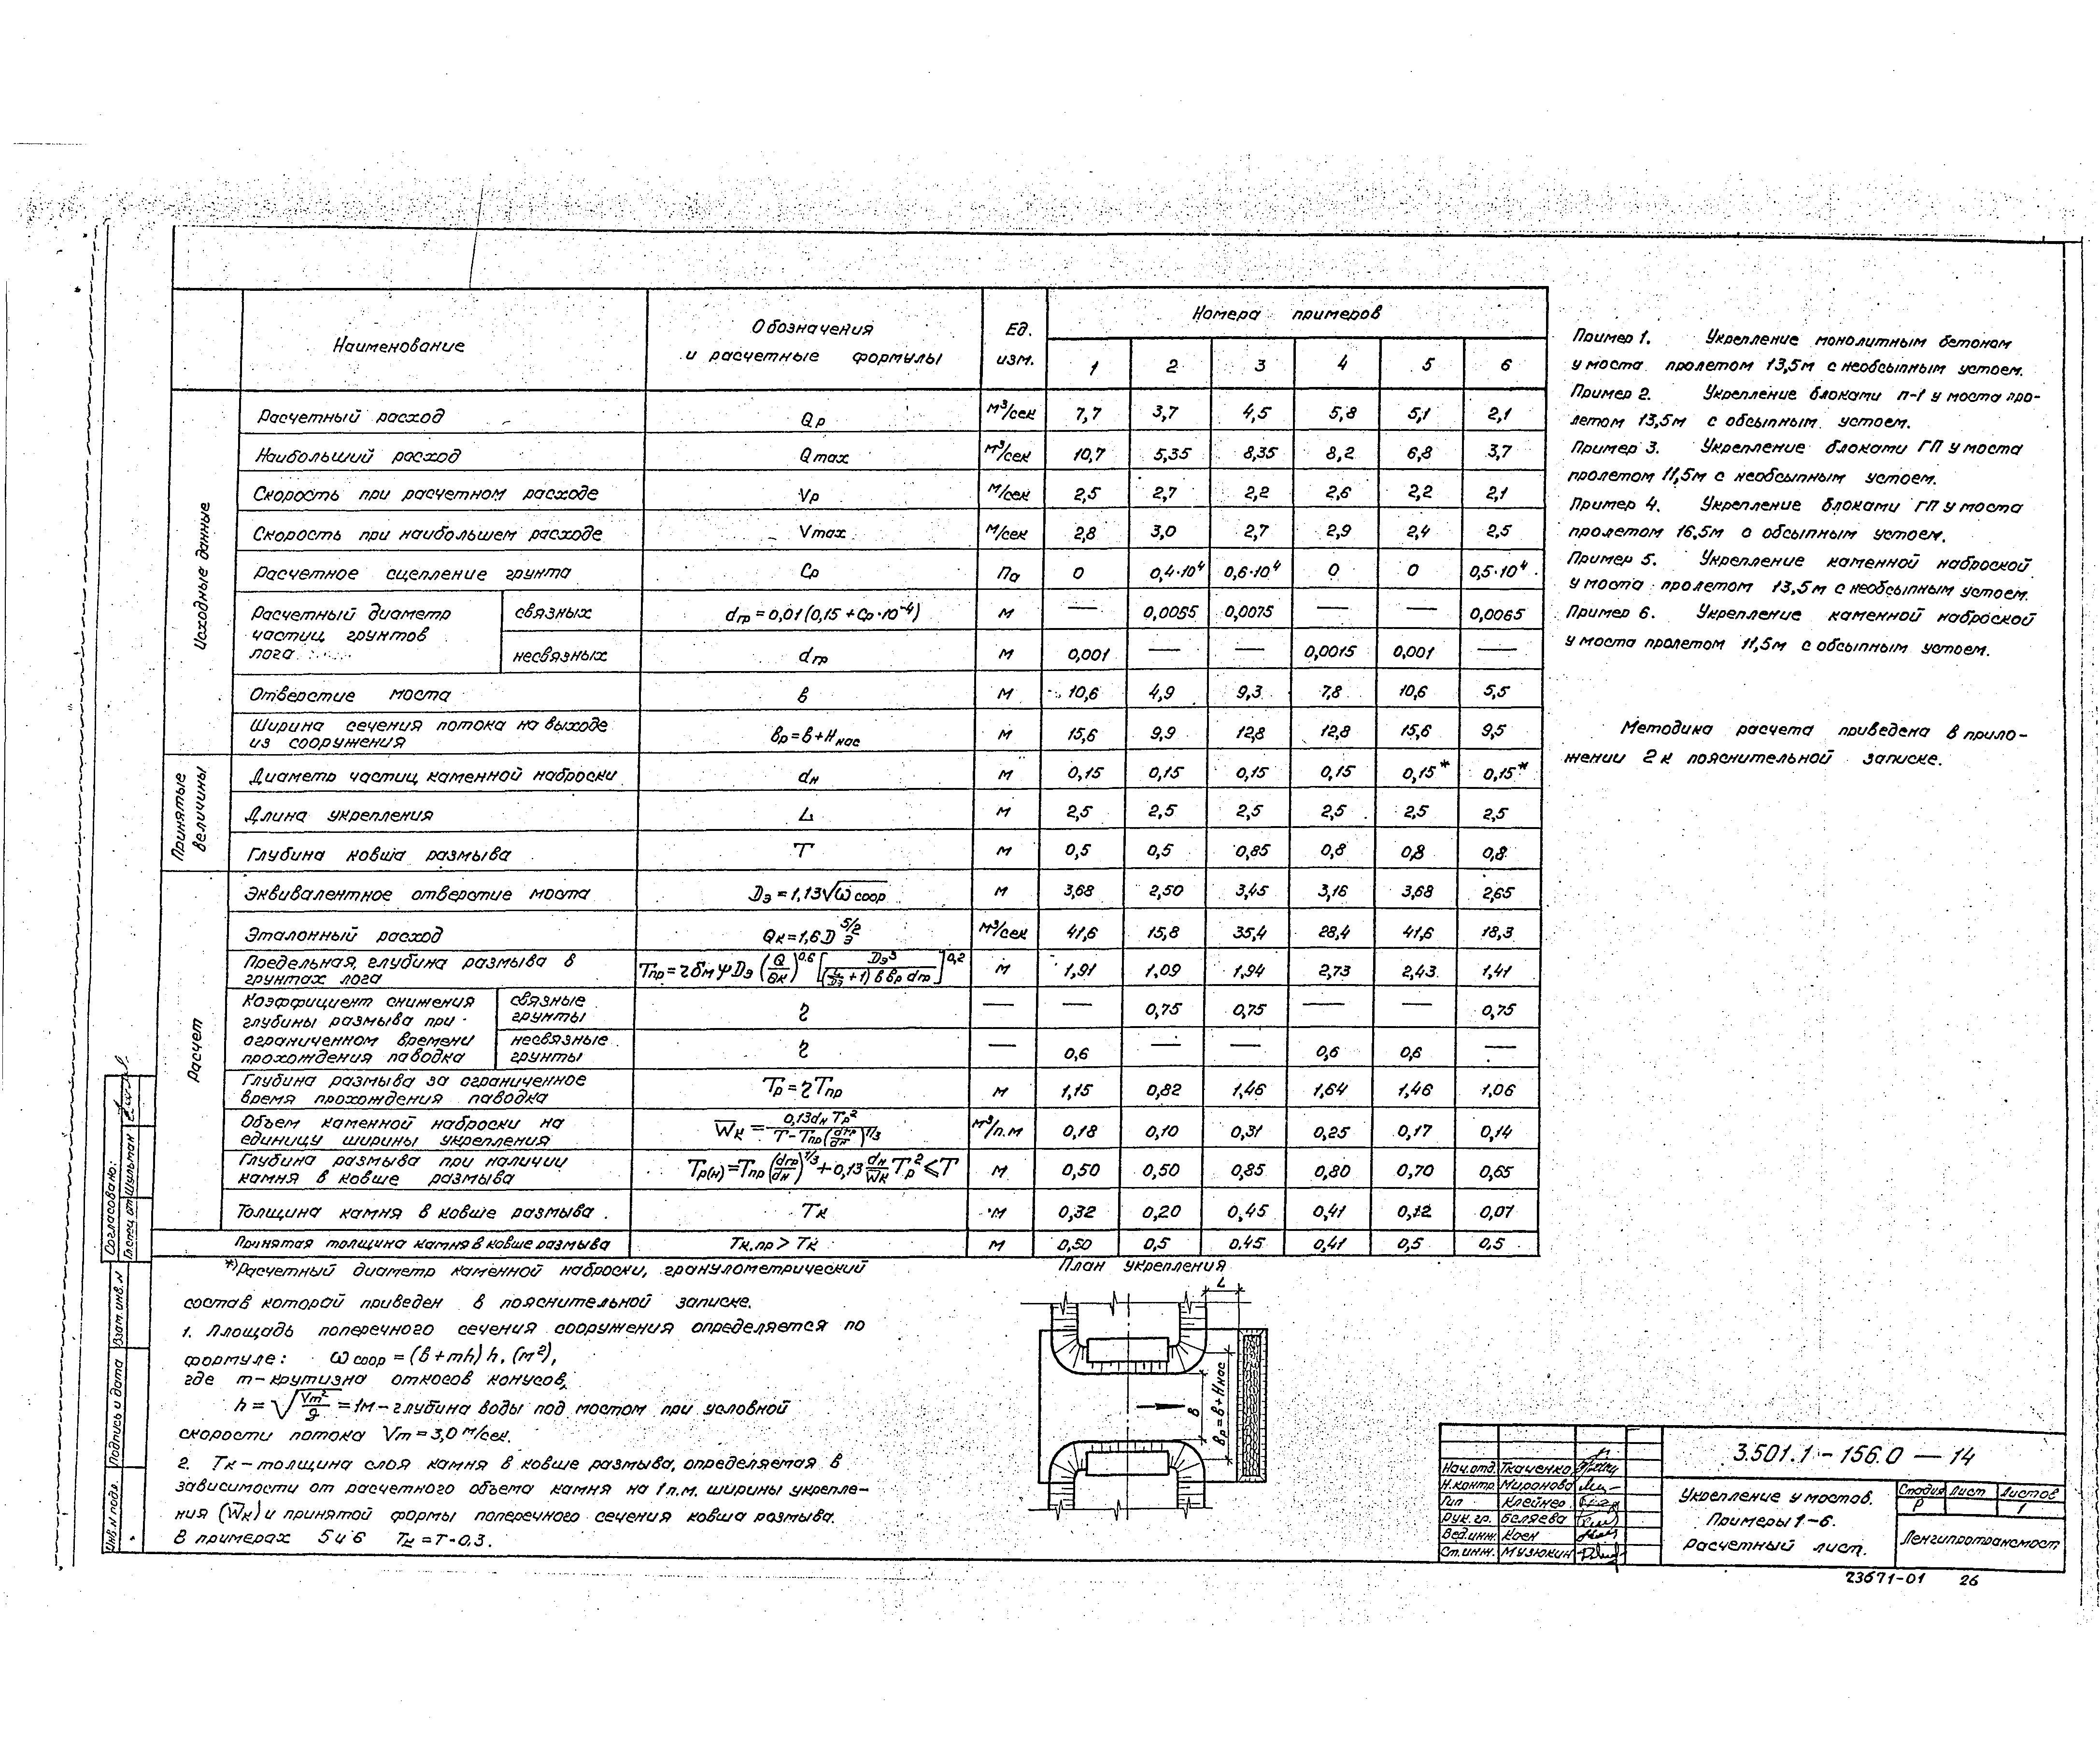 Наименование
Обозначения
и расчетные формулы
Ед.
изм.
Номера примеров
1 2 3 4 5 6
Исходные данные
Расчетный расход Qр м³/сек 7,7 3,7 4,5 5,8 5,1 2,1
Наибольший расход Qmax м³/сек 10,7 5,35 8,35 8,2 6,8 3,7
Скорость при расчетном расходе Vр м/сек 2,5 2,7 2,2 2,6 2,2 2,1
Скорость при наибольшем расходе Vmax м/сек 2,8 3,0 2,7 2,9 2,4 2,5
Расчетное сцепление грунта Ср Па 0 0,4·10⁴ 0,6·10⁴ 0 0 0,5·10⁴
Расчетный диаметр
частиц грунтов
лога
связных dгр = 0,01 (0,15 + Ср·10⁻⁴) м — 0,0055 0,0075 — — 0,0065
несвязных dгр м 0,001 — — 0,0015 0,001 —
Отверстие моста в м 10,6 4,9 9,3 7,8 10,6 5,5
Ширина сечения потока на выходе
из сооружения
вр = в + Ннас м 15,6 9,9 12,8 12,8 15,6 9,5
Принятые
величины
Диаметр частиц каменной наброски dн м 0,15 0,15 0,15 0,15 0,15* 0,15*
Длина укрепления L м 2,5 2,5 2,5 2,5 2,5 2,5
Глубина ковша размыва Т м 0,5 0,5 0,85 0,8 0,8 0,8
Расчет
Эквивалентное отверстие моста Dэ = 1,13√ω соор м 3,68 2,50 3,45 3,16 3,68 2,65
Эталонный расход Qк = 1,6 D э 5/2 м³/сек 41,6 15,8 35,4 28,4 41,6 18,3
Предельная глубина размыва в
грунтах лога
Тпр = 2 бм ψ Dэ (Q/Qк)^0,6 [Dэ³/((L/Dэ + 1) в вр dгр)]^0,2 м 1,91 1,09 1,94 2,73 2,43 1,41
Коэффициент снижения
глубины размыва при
ограниченном времени
прохождения паводка
связные
грунты
η — — 0,75 0,75 — — 0,75
несвязные
грунты
η — 0,6 — — 0,6 0,6 —
Глубина размыва за ограниченное
время прохождения паводка
Тр = η Тпр м 1,15 0,82 1,46 1,64 1,46 1,06
Объем каменной наброски на
единицу ширины укрепления
Wк = 0,13 dн Тр²/(Т − Тпр (dгр/dн)^1/3) м³/п.м 0,18 0,10 0,31 0,25 0,17 0,14
Глубина размыва при наличии
камня в ковше размыва
Тр(н) = Тпр (dгр/dн)^1/3 + 0,13 dн/Wк Тр² ⩽ Т м 0,50 0,50 0,85 0,80 0,70 0,65
Толщина камня в ковше размыва. Тк м 0,32 0,20 0,45 0,41 0,12 0,07
Принятая толщина камня в ковше размыва Тк.пр > Тк м 0,50 0,5 0,45 0,41 0,5 0,5
*) Расчетный диаметр каменной наброски, гранулометрический
состав которой приведен в пояснительной записке.
1. Площадь поперечного сечения сооружения определяется по
формуле: ω соор = (в + mh) h, (м²),
где m - крутизна откосов конусов,
h = √(Vm²/g) = 1м - глубина воды под мостом при условной
скорости потока Vm = 3,0 м/сек.
2. Тк - толщина слоя камня в ковше размыва, определяемая в
зависимости от расчетного объема камня на 1 п.м. ширины укрепле-
ния (Wк) и принятой формы поперечного сечения ковша размыва.
В примерах 5 и 6 Тк = Т-0,3.
План укрепления
L
в
вр = в + Ннас
Пример 1. Укрепление монолитным бетоном
у моста пролетом 13,5м с необсыпным устоем.
Пример 2. Укрепление блоками п-1 у моста про-
летом 13,5м с обсыпным устоем.
Пример 3. Укрепление блоками ГП у моста
пролетом 11,5м с необсыпным устоем.
Пример 4. Укрепление блоками ГП у моста
пролетом 16,5м с обсыпным устоем.
Пример 5. Укрепление каменной наброской
у моста пролетом 13,5м с необсыпным устоем.
Пример 6. Укрепление каменной наброской
у моста пролетом 11,5м с обсыпным устоем.
Методика расчета приведена в прило-
жении 2 к пояснительной записке.
Согласовано:
Гл.спец. от Шульман
Взам. инв. N
Подпись и дата
Инв. N подл.
Нач.отд. Ткаченко
Н.контр. Миронова
Гип Клейнер
Рук. гр. Беляева
Вед.инж. Коен
Ст.инж. Музюкин
3.501.1 - 156.0 — 14
Укрепление у мостов.
Примеры 1-6.
Расчетный лист.
Стадия Лист Листов
Р 1
Ленгипротрансмост
23671-01 26